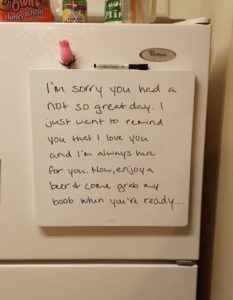 Own
Honey Wheat
Whirlpool
I'm sorry you had a
not so great day. I
just want to remind
you that I love you
and I'm always here
for you. Now, enjoy a
beer & come grab my
boob when you're ready....